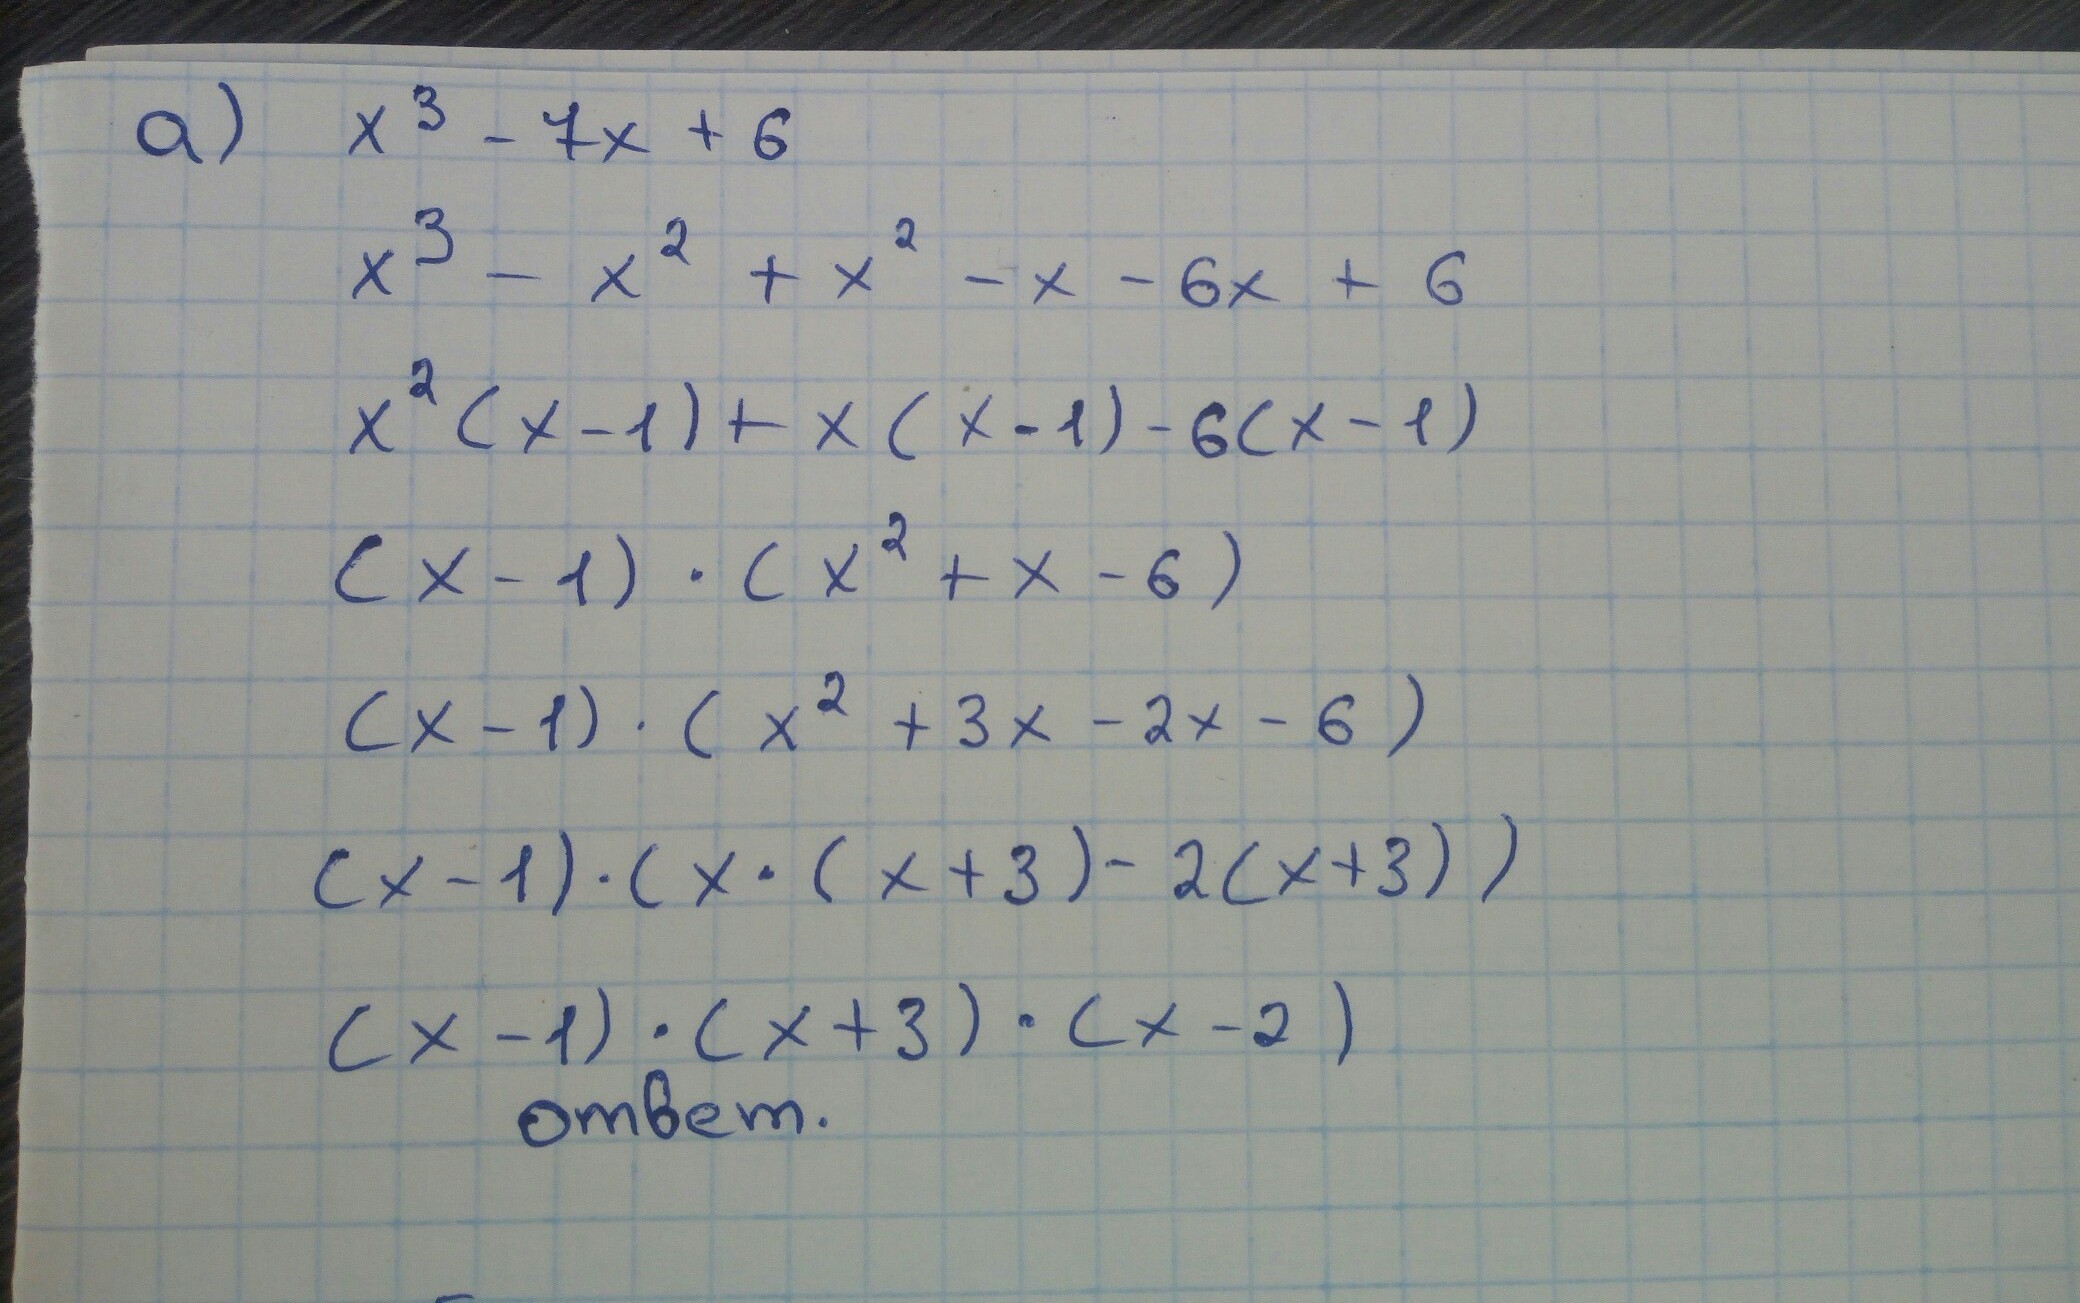 а) x³ - 7x + 6
x³ - x² + x² - x - 6x + 6
x²(x-1) + x(x-1) - 6(x-1)
(x-1)·(x²+x-6)
(x-1)·(x²+3x-2x-6)
(x-1)·(x·(x+3)-2(x+3))
(x-1)·(x+3)·(x-2)
ответ.